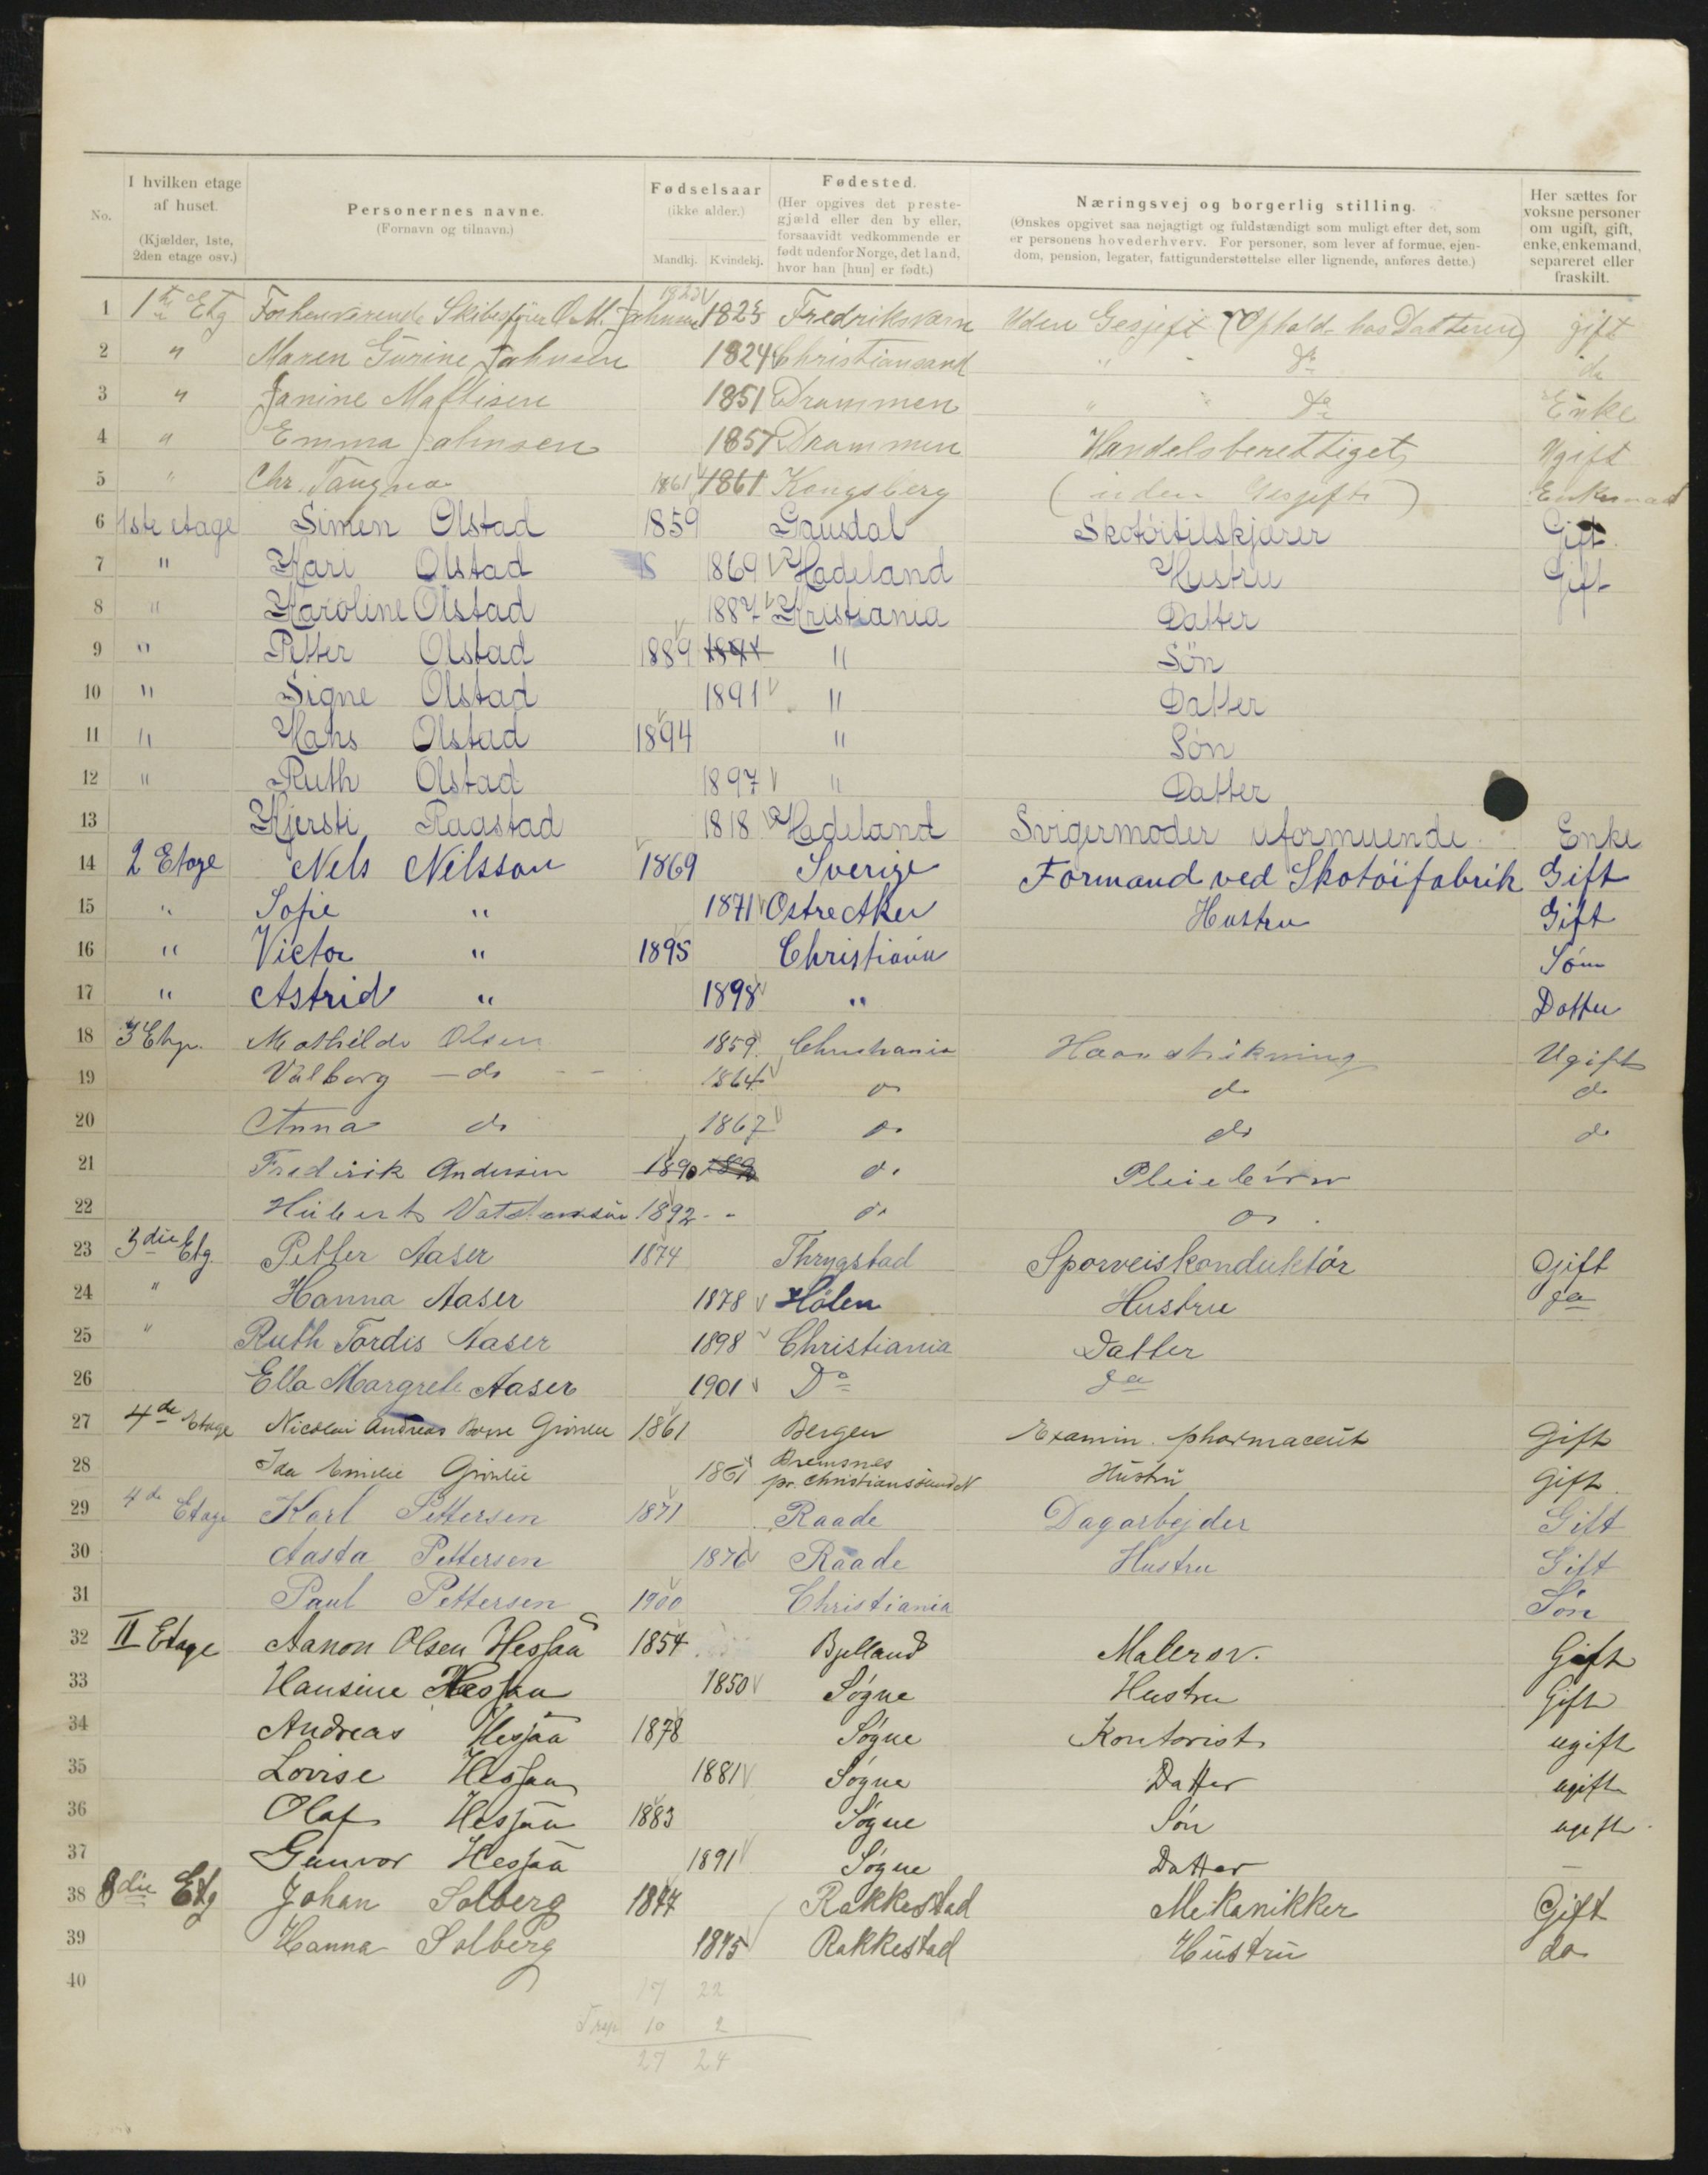 I hvilken etage af huset.
(Kjælder, 1ste, 2den etage osv.)
No.
Personernes navne.
(Fornavn og tilnavn.)
Fødselsaar
(ikke alder.)
Mandkj. Kvindekj.
Fødested.
(Her opgives det preste-
gjæld eller den by eller,
forsaavidt vedkommende er
født udenfor Norge, det land,
hvor han [hun] er født.)
Næringsvej og borgerlig stilling.
(Ønskes opgivet saa nøjagtigt og fuldstændigt som muligt efter det, som
er personens hovederhverv. For personer, som lever af formue, ejen-
dom, pension, legater, fattigunderstøttelse eller lignende, anføres dette.)
Her sættes for
voksne personer
om ugift, gift,
enke, enkemand,
separeret eller
fraskilt.
1 1ste Etg Forhenværende Skibsfører O. M. Johnsen 1823 Fredriksværn Uden Gesjeft (Ophold hos Datteren) gift
2 " Maren Gurine Johnsen 1824 Christiansand " " do do
3 " Janine Mathisen 1851 Drammen " " do Enke
4 " Emma Johnsen 1857 Drammen Handelsberettiget Ugift
5 " Chr. Tangna 1861 1861 Kongsberg (uden Gesjeft) Enkemand
6 1ste etage Simen Olstad 1859 Gausdal Skotøitilskjærer Gift.
7 " Kari Olstad 1869 Hadeland Hustru Gift
8 " Karoline Olstad 1887 Kristiania Datter
9 " Petter Olstad 1889 1891 " Søn
10 " Signe Olstad 1891 " Datter
11 " Hans Olstad 1894 " Søn
12 " Ruth Olstad 1897 " Datter
13 Kjersti Raastad 1818 Hadeland Svigermoder uformuende Enke
14 2 Etage Nels Nilsson 1869 Sverige Formand ved Skotøifabrik Gift
15 " Sofie " 1871 Østre Aker Hustru Gift
16 " Victor " 1895 Christiania Søn
17 " Astrid " 1898 " Datter
18 3 Etg. Mathilde Olsen 1859 Christiania Haandstrikning Ugift
19 Valborg do 1864 do do do
20 Anna do 1867 do do do
21 Fredrik Andersen 1890 do Pleiebørn
22 Hubert 1892 do do
23 3die Etg. Petter Aaser 1874 Thrygstad Sporveiskonduktør Gift
24 " Hanna Aaser 1878 Hølen Hustru do
25 " Ruth Tordis Aaser 1898 Christiania Datter
26 Ella Margrete Aaser 1901 Do do
27 4de Etage Nicolai Andreas Grønlie 1861 Bergen Examin. pharmaceut Gift
28 Ida Emilie Grønlie 1861 Bremsnes pr. Christianssund N Hustru Gift.
29 4de Etage Karl Pettersen 1871 Raade Dagarbejder Gift
30 Aasta Pettersen 1876 Raade Hustru Gift
31 Paul Pettersen 1900 Christiania Søn
32 II Etage Aanon Olsen Hesjaa 1854 Bjelland Malersv. Gift
33 Hansine Hesjaa 1850 Søgne Hustru Gift
34 Andreas Hesjaa 1878 Søgne Kontorist ugift
35 Lovise Hesjaa 1881 Søgne Datter ugift
36 Olaf Hesjaa 1883 Søgne Søn ugift
37 Gunvor Hesjaa 1891 Søgne Datter –
38 3die Etg Johan Solberg 1877 Rakkestad Mekanikker Gift
39 Hanna Solberg 1875 Rakkestad Hustru do
40
17 22
10 2
27 24